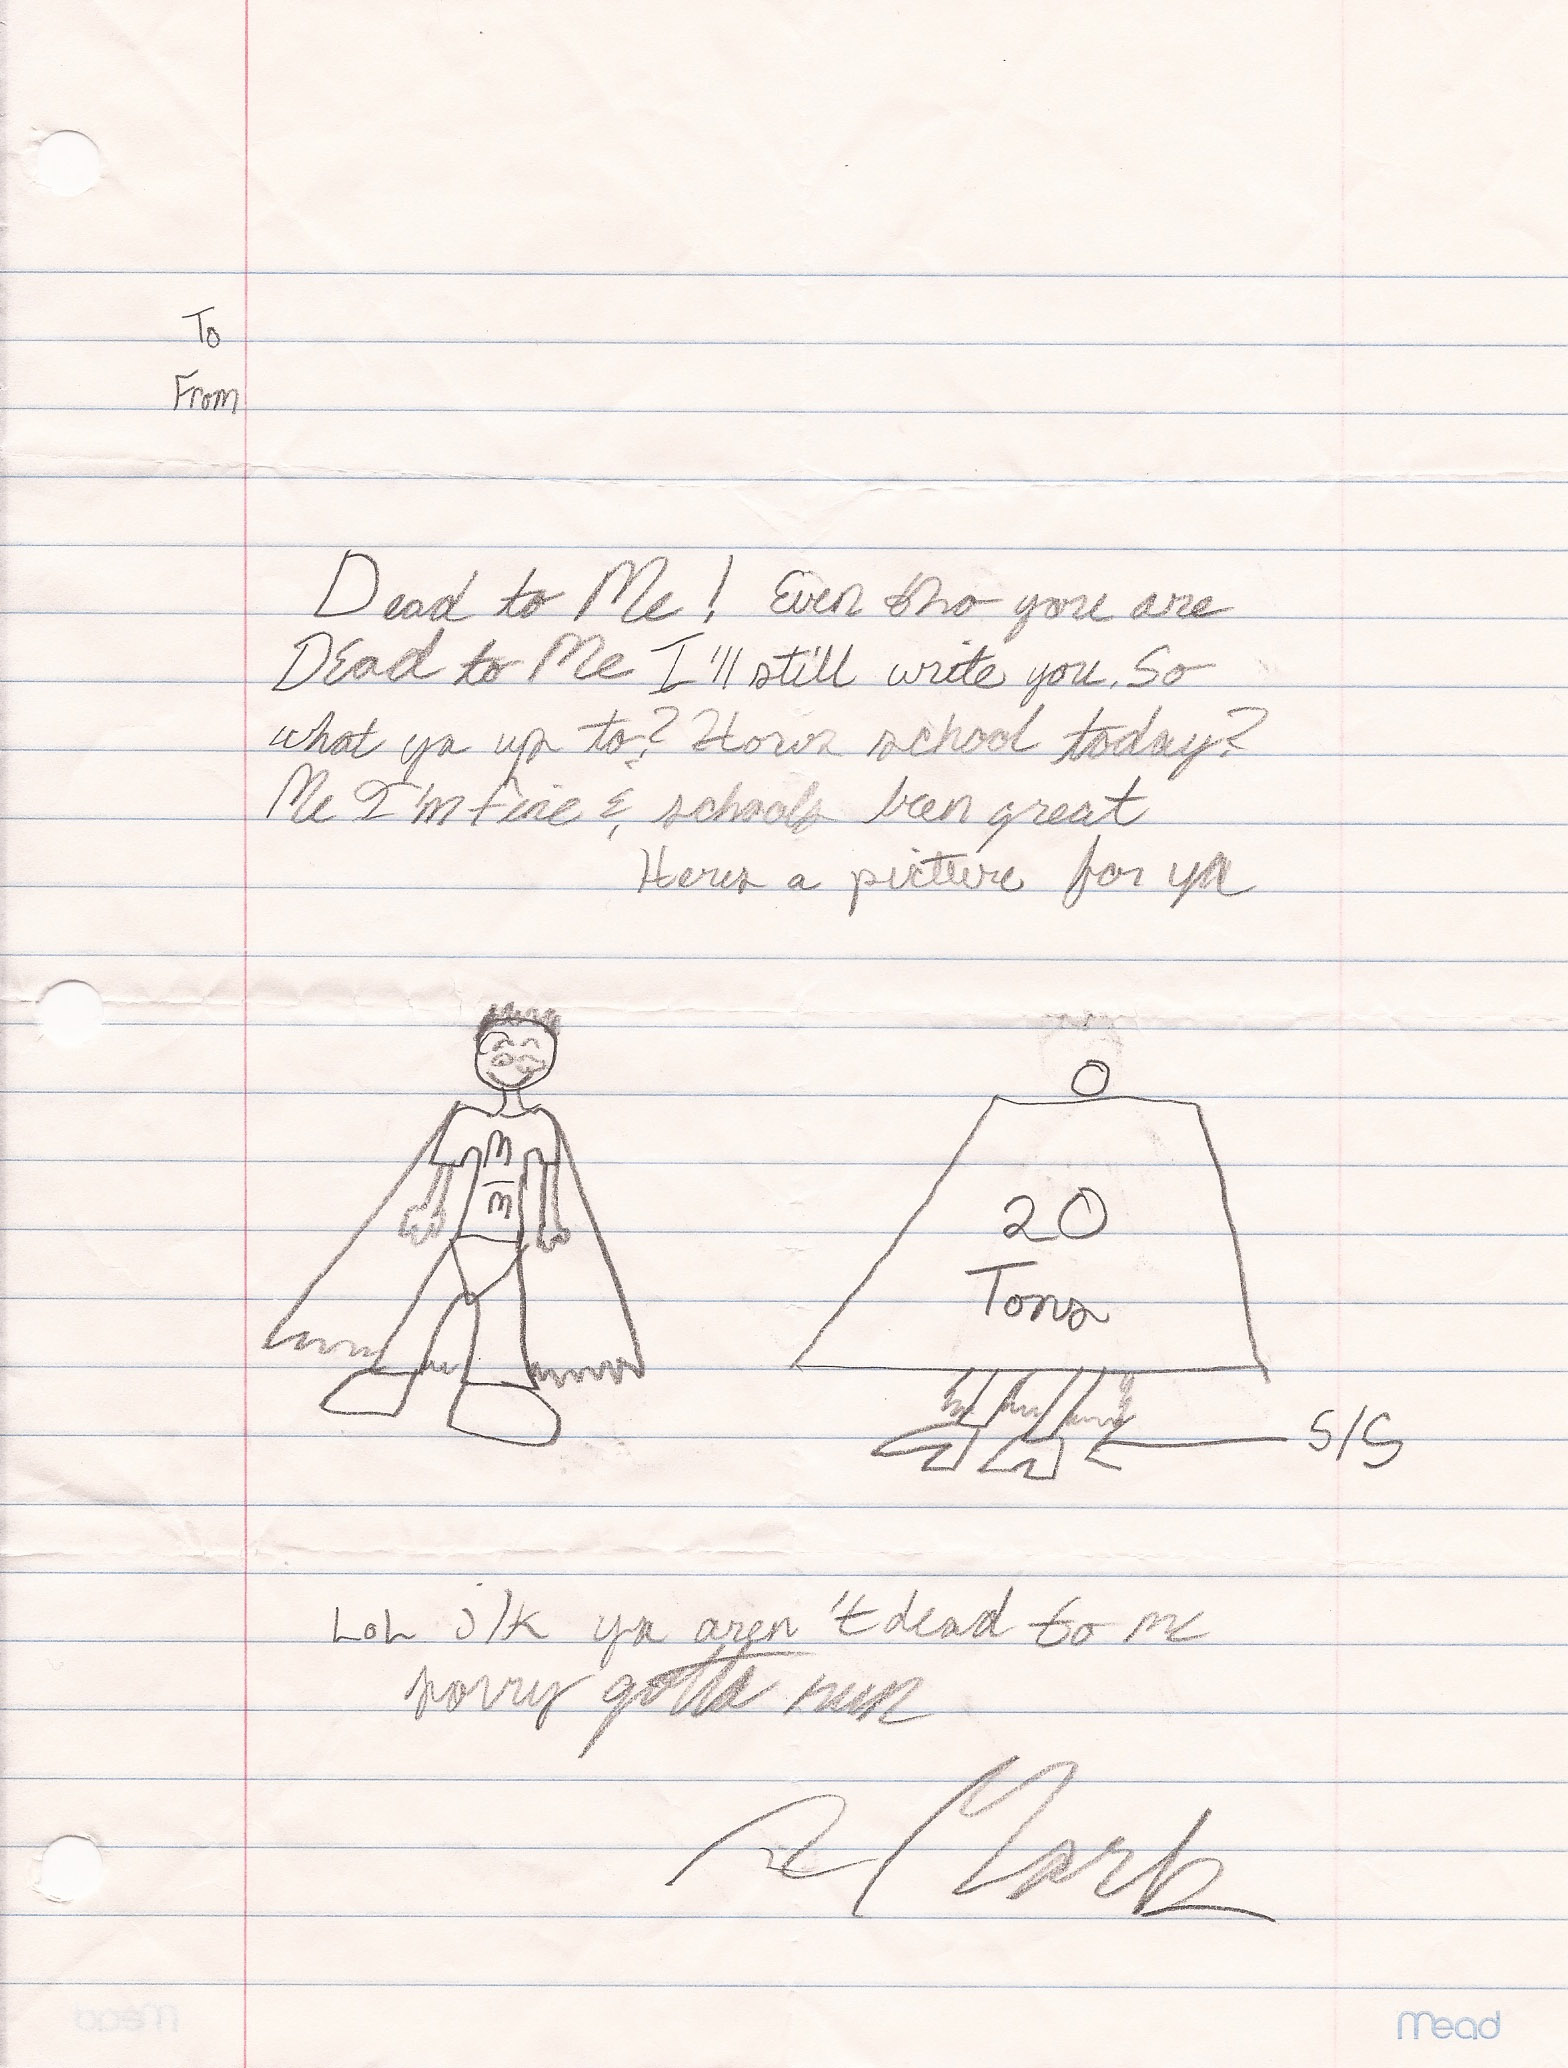 To
From
Dead to Me! Even tho you are
DEad to Me I'll still write you. So
what ya up to? Hows school today?
Me I'm fine & schools been great
Heres a picture for ya
M
M
20
Tons
S/S
LoL j/k ya aren't dead to me
sorry gotta run
Mark
Mead